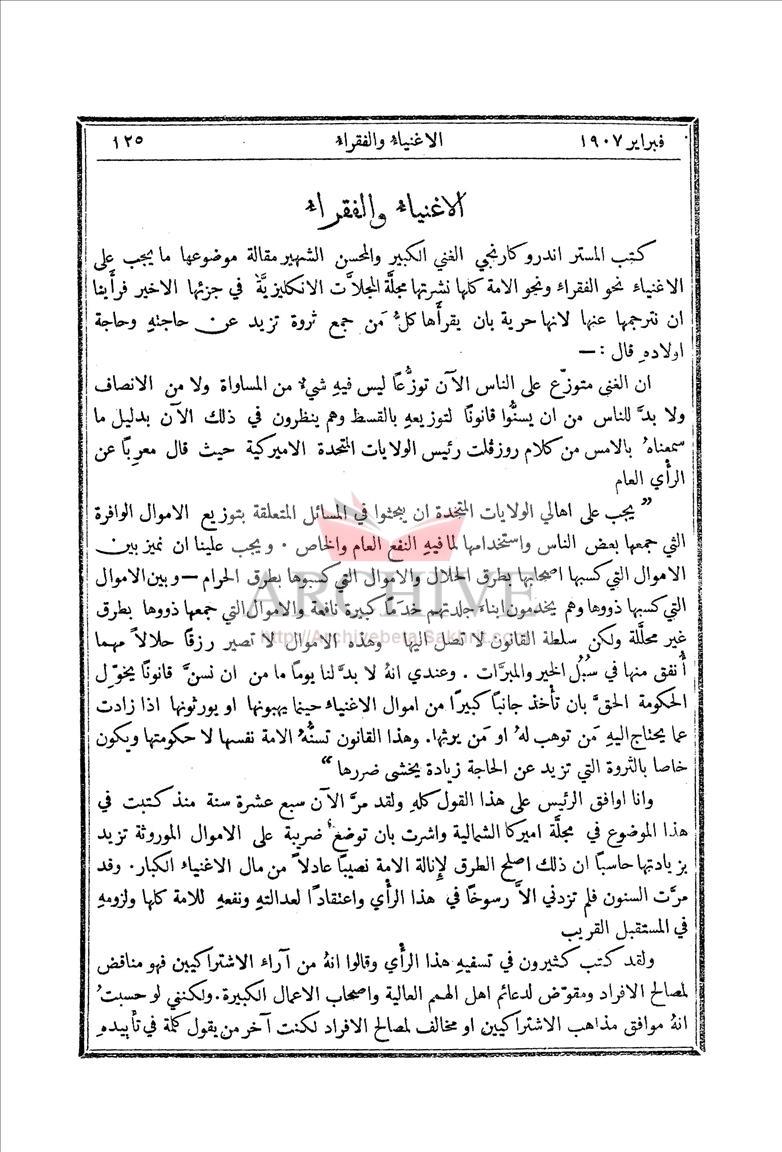 فبراير ١٩٠٧ الاغنياء والفقراء ١٢٥
الاغنياء والفقراء
كتب المستر اندرو كارنجي الغني الكبير والمحسن الشهير مقالة موضوعها ما يجب على
الاغنياء نحو الفقراء ونحو الامة كلها نشرتها مجلَّة المجلاَّت الانكليزيَّة في جزئها الاخير فرأَينا
ان نترجمها عنها لانها حرية بان يقرأَها كلُّ مَن جمع ثروة تزيد عن حاجتهِ وحاجة
اولادهِ قال :—
ان الغنى متوزّع على الناس الآن توزُّعاً ليس فيهِ شيءٌ من المساواة ولا من الانصاف
ولا بدَّ للناس من ان يسنُّوا قانونًا لتوزيعهِ بالقسط وهم ينظرون في ذلك الآن بدليل ما
سمعناهُ بالامس من كلام روزفلت رئيس الولايات المتحدة الاميركية حيث قال معربًا عن
الرأي العام
” يجب على اهالي الولايات المتحدة ان يبحثوا في المسائل المتعلقة بتوزيع الاموال الوافرة
التي جمعها بعض الناس واستخدامها لما فيهِ النفع العام والخاص . ويجب علينا ان نميز بين
الاموال التي كسبها اصحابها بطرق الحلال والاموال التي كسبوها بطرق الحرام – وبين الاموال
التي كسبها ذووها وهم يخدمون ابناء جلدتهم خدَمًا كبيرة نافعة والاموال التي جمعها ذووها بطرق
غير محلَّلة ولكن سلطة القانون لا تصل اليها وهذه الاموال لا تصير رزقًا حلالاً مهما
أُنفق منها في سُبُل الخير والمبرَّات . وعندي انهُ لا بدَّ لنا يومًا ما من ان نسنَّ قانونًا يخوّل
الحكومة الحقَّ بان تأْخذ جانبًا كبيرًا من اموال الاغنياء حينما يهبونها او يورثونها اذا زادت
عما يحتاج اليهِ مَن توهب لهُ او مَن يرثها. وهذا القانون تسنُّهُ الامة نفسها لا حكومتها ويكون
خاصا بالثروة التي تزيد عن الحاجة زيادة يخشى ضررها “
وانا اوافق الرئيس على هذا القول كلهِ ولقد مرَّ الآن سبع عشرة سنة منذ كتبت في
هذا الموضوع في مجلَّة اميركا الشمالية واشرت بان توضع ضريبة على الاموال الموروثة تزيد
بزيادتها حاسبًا ان ذلك اصلح الطرق لإنالة الامة نصيبًا عادلاً من مال الاغنياء الكبار . وقد
مرَّت السنون فلم تزدني الاَّ رسوخًا في هذا الرأي واعتقادًا لعدالتهِ ونفعهِ للامة كلها ولزومهِ
في المستقبل القريب
ولقد كتب كثيرون في تسفيهِ هذا الرأي وقالوا انهُ من آراء الاشتراكيين فهو مناقض
لمصالح الافراد ومقوّض لدعائم اهل الهمم العالية واصحاب الاعمال الكبيرة.ولكنني لو حسبتُ
انهُ موافق مذاهب الاشتراكيين او مخالف لمصالح الافراد لكنت آخر من يقول كلمة في تأْييدهِ
ARCHIVE
http://Archivebeta.Sakhrit.com